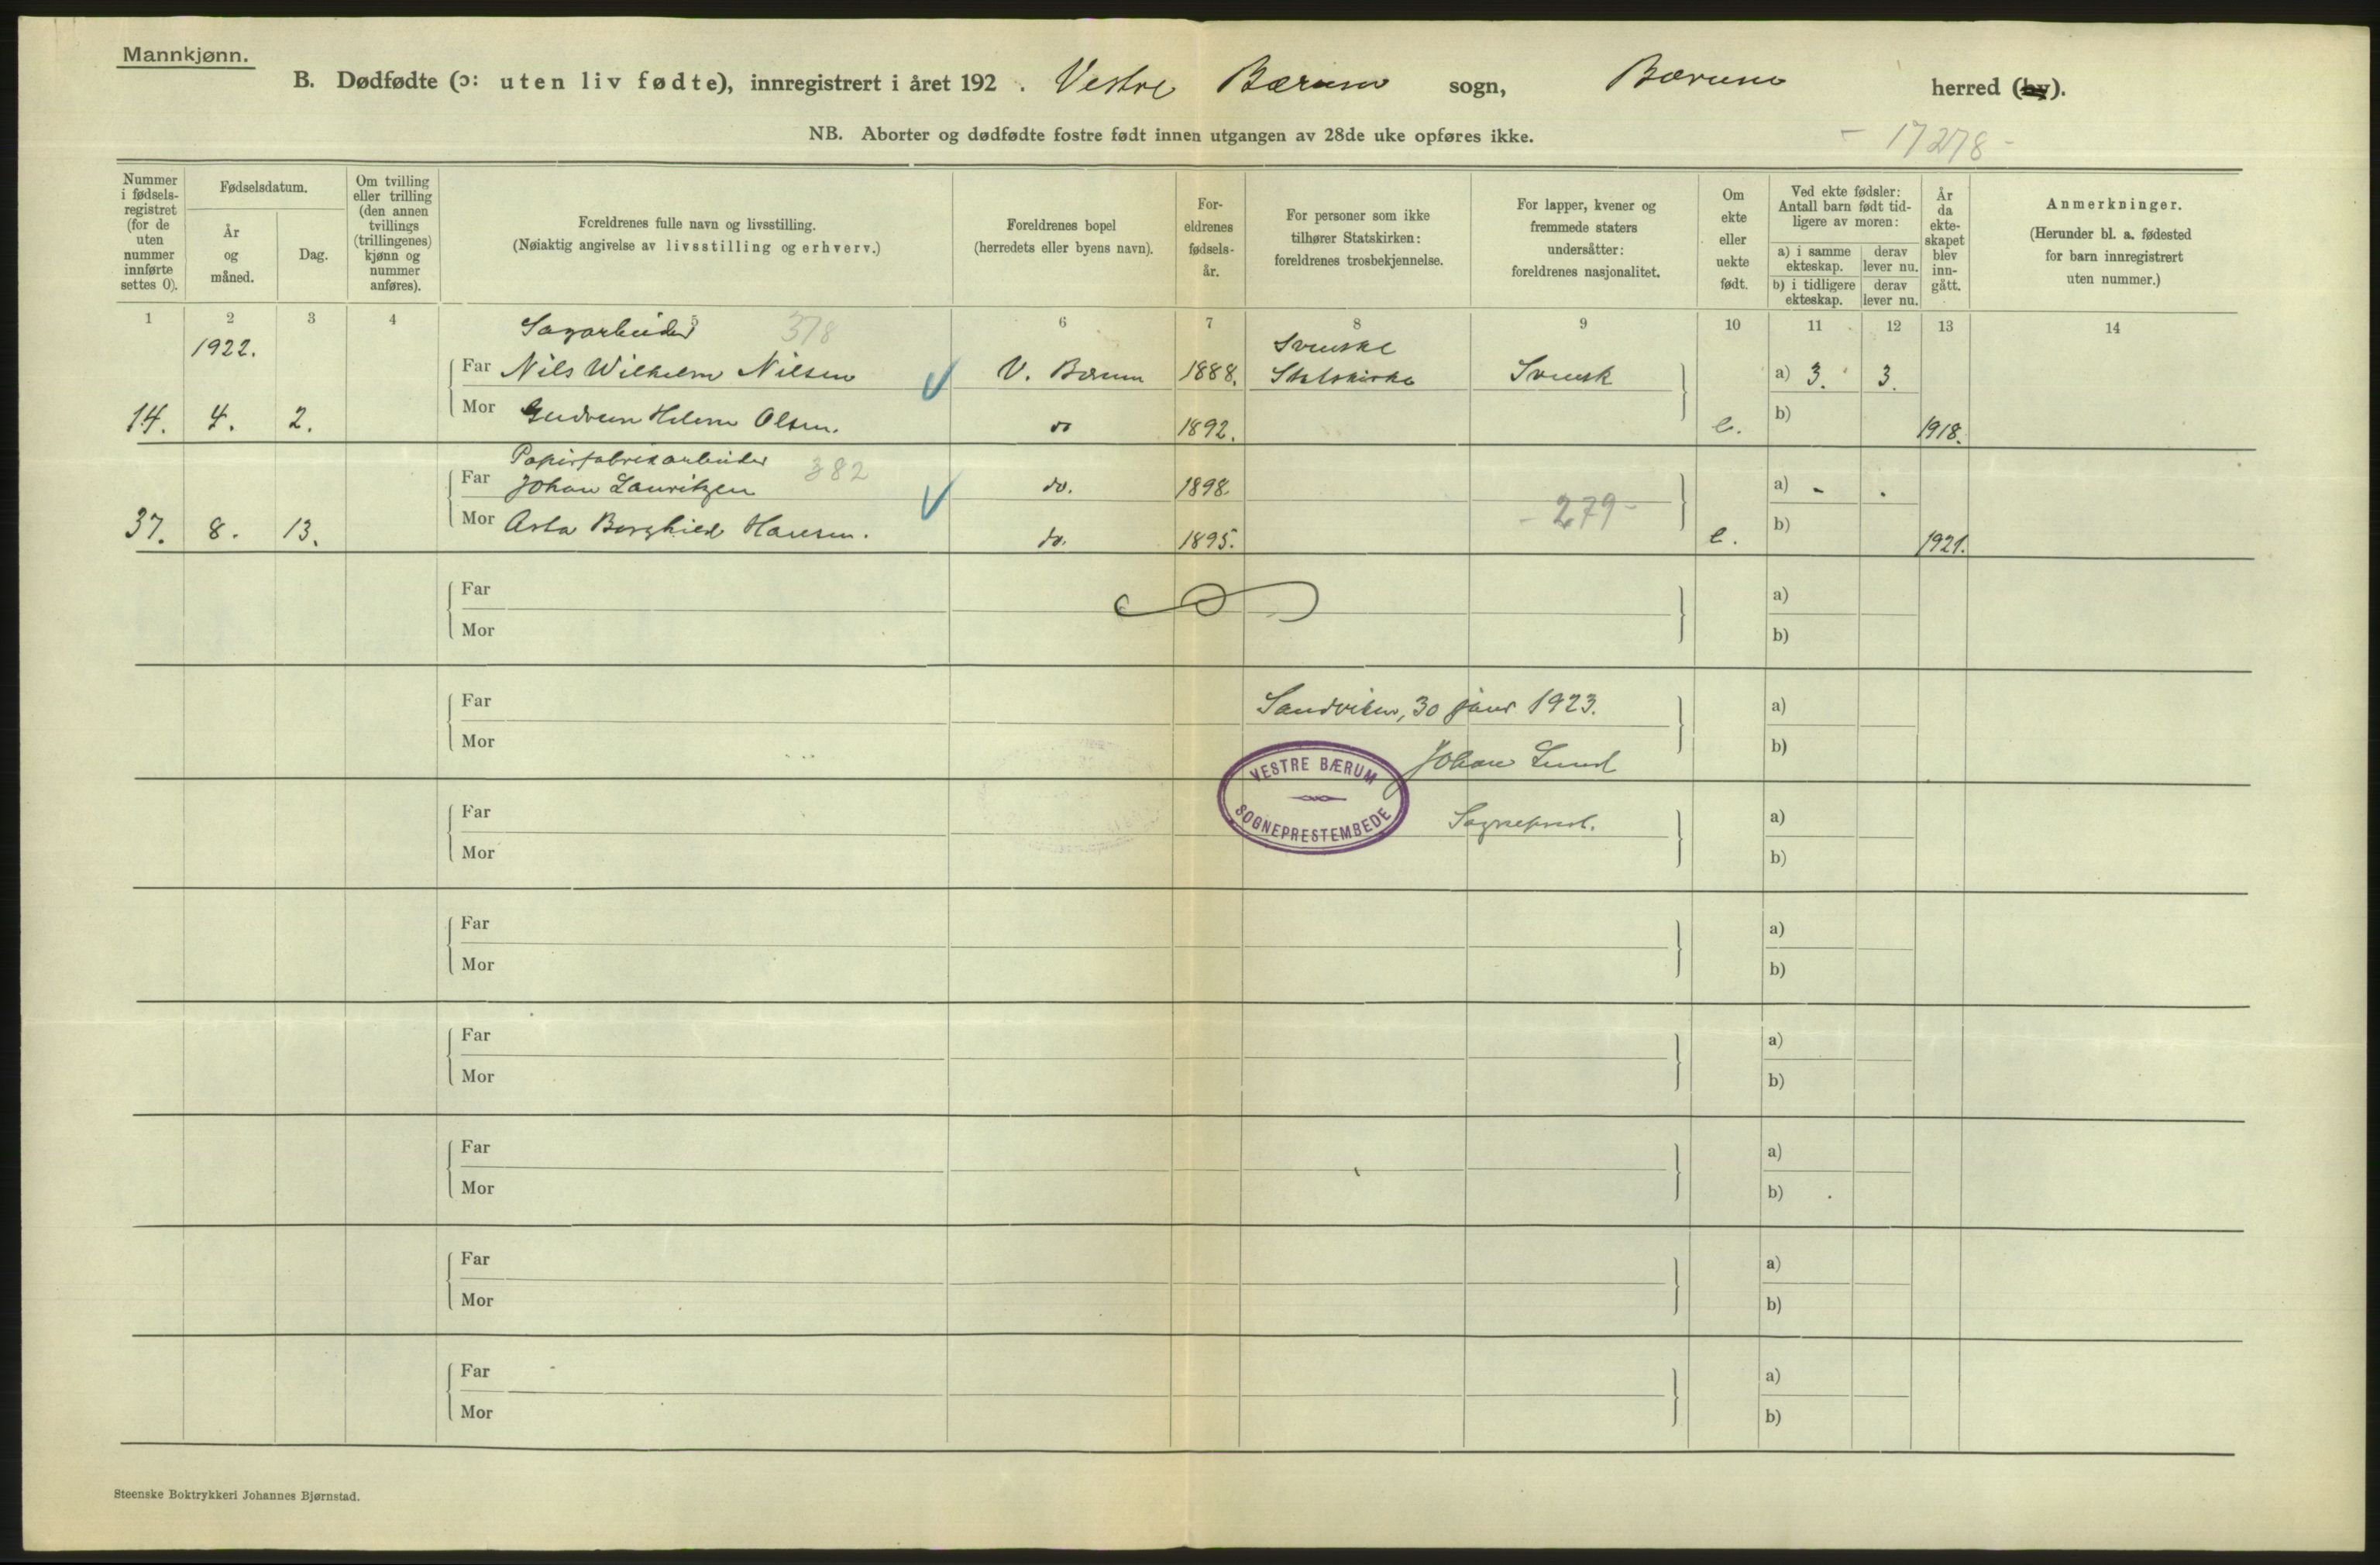 Mannkjønn.
B. Dødfødte (ɔ: uten liv fødte), innregistrert i året 192 . Vestre Bærum sogn, Bærum herred (by).
NB. Aborter og dødfødte fostre født innen utgangen av 28de uke opføres ikke.
- 17278 -
Nummer i fødsels-registret (for de uten nummer innførte settes 0).
Fødselsdatum.
År og måned.
Dag.
Om tvilling eller trilling (den annen tvillings (trillingenes) kjønn og nummer anføres).
Foreldrenes fulle navn og livsstilling.
(Nøiaktig angivelse av livsstilling og erhverv.)
Foreldrenes bopel
(herredets eller byens navn).
For-eldrenes fødsels-år.
For personer som ikke tilhører Statskirken: foreldrenes trosbekjennelse.
For lapper, kvener og fremmede staters undersåtter: foreldrenes nasjonalitet.
Om ekte eller uekte født.
Ved ekte fødsler: Antall barn født tid-ligere av moren:
a) i samme ekteskap. derav lever nu.
b) i tidligere ekteskap. derav lever nu.
År da ekte-skapet blev inn-gått.
Anmerkninger.
(Herunder bl. a. fødested for barn innregistrert uten nummer.)
1 2 3 4 5 6 7 8 9 10 11 12 13 14
1922. Sagarbeider 378 Svenske
Far Nils Wilhelm Nilsen V. Bærum 1888. Statskirke Svensk a) 3. 3.
14. 4. 2. Mor Gudrun Helene Olsen. do 1892. e. b) 1918.
Papirfabrikarbeider 382
Far Johan Lauritzen do. 1898. a) - .
- 279 -
37. 8. 13. Mor Asta Borghild Hansen. do. 1895. e. b) 1921.
Far a)
Mor b)
Far Sandviken, 30 januar 1923. a)
Mor Johan Lund b)
VESTRE BÆRUM
SOGNEPRESTEMBEDE
Far Sogneprest. a)
Mor b)
Far a)
Mor b)
Far a)
Mor b)
Far a)
Mor b)
Far a)
Mor b)
Far a)
Mor b)
Steenske Boktrykkeri Johannes Bjørnstad.